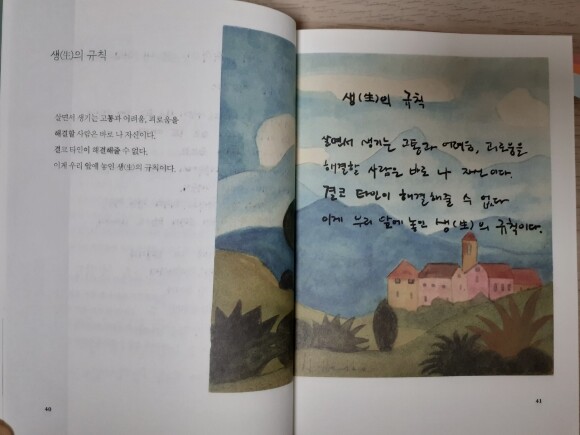 생(生)의 규칙
살면서 생기는 고통과 어려움, 괴로움을
해결할 사람은 바로 나 자신이다.
결코 타인이 해결해줄 수 없다.
이게 우리 앞에 놓인 생(生)의 규칙이다.
40
생(生)의 규칙
살면서 생기는 고통과 어려움, 괴로움을
해결할 사람은 바로 나 자신이다.
결코 타인이 해결해줄 수 없다
이게 우리 앞에 놓인 생(生)의 규칙이다.
41